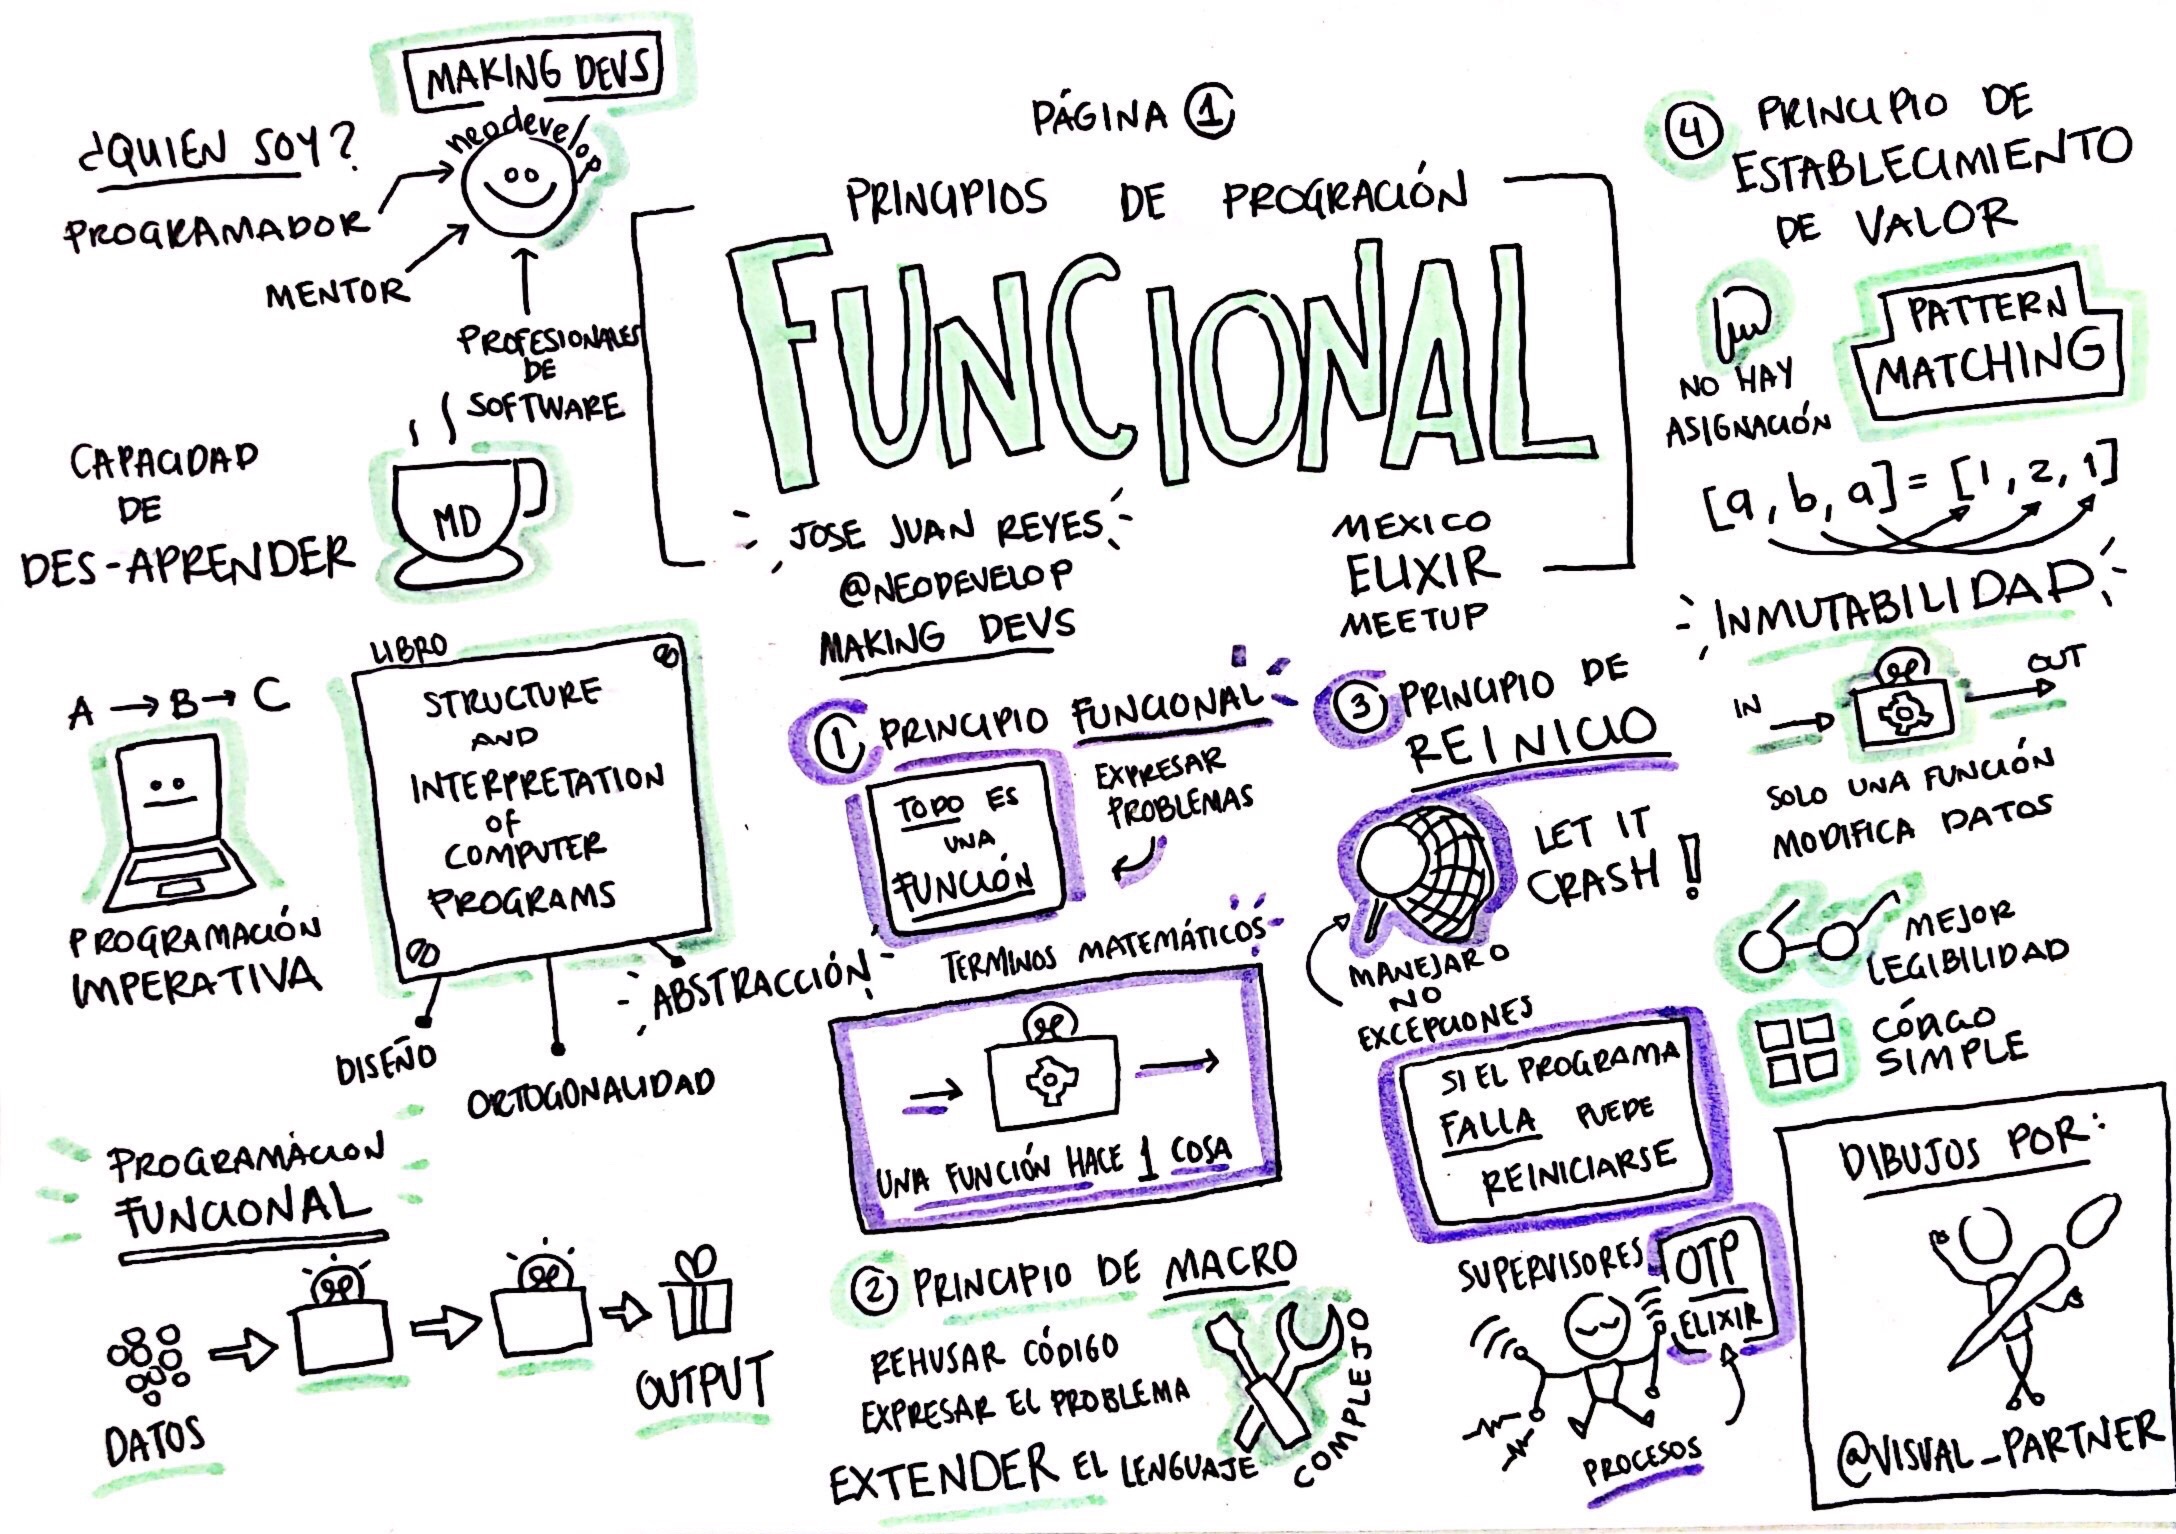 MAKING DEVS
neodevelop
¿QUIEN SOY?
PROGRAMADOR
MENTOR
PROFESIONALES
DE
SOFTWARE
CAPACIDAD
DE
DES-APRENDER
MD
A → B → C
PROGRAMACIÓN
IMPERATIVA
LIBRO
STRUCTURE
AND
INTERPRETATION
OF
COMPUTER
PROGRAMS
DISEÑO
ORTOGONALIDAD
ABSTRACCIÓN
PROGRAMACIÓN
FUNCIONAL
DATOS
OUTPUT
PÁGINA 1
PRINCIPIOS DE PROGRACIÓN
FUNCIONAL
JOSE JUAN REYES
@NEODEVELOP
MAKING DEVS
MEXICO
ELIXIR
MEETUP
1 PRINCIPIO FUNCIONAL
TODO ES
UNA
FUNCIÓN
EXPRESAR
PROBLEMAS
TERMINOS MATEMÁTICOS
UNA FUNCIÓN HACE 1 COSA
2 PRINCIPIO DE MACRO
REHUSAR CÓDIGO
EXPRESAR EL PROBLEMA
EXTENDER EL LENGUAJE
COMPLEJO
3 PRINCIPIO DE
REINICIO
LET IT
CRASH!
MANEJAR O
NO
EXCEPCIONES
SI EL PROGRAMA
FALLA PUEDE
REINICIARSE
SUPERVISORES
OTP
ELIXIR
PROCESOS
4 PRINCIPIO DE
ESTABLECIMIENTO
DE VALOR
NO HAY
ASIGNACIÓN
PATTERN
MATCHING
[a, b, a] = [1, 2, 1]
INMUTABILIDAD
IN
OUT
SOLO UNA FUNCIÓN
MODIFICA DATOS
MEJOR
LEGIBILIDAD
CÓDIGO
SIMPLE
DIBUJOS POR:
@VISUAL_PARTNER